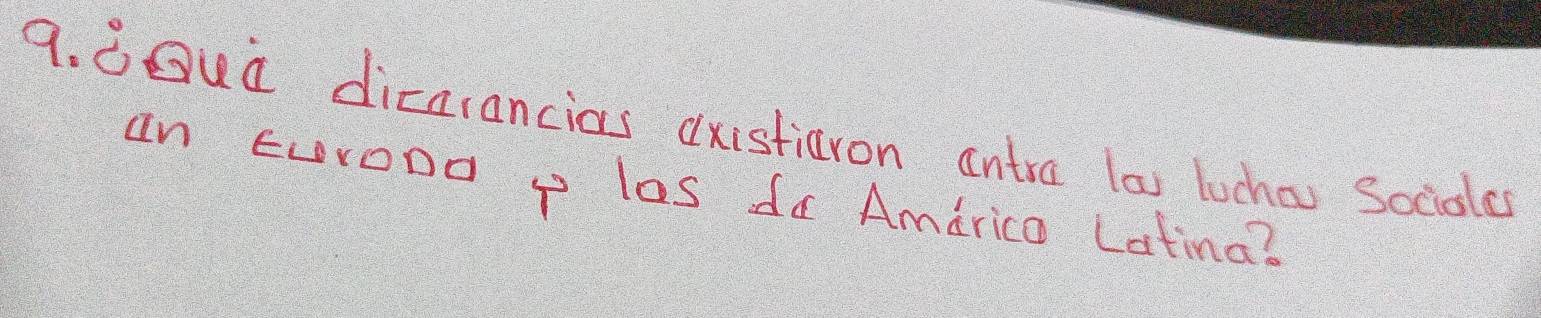 9. ¿Qué diferencias existieron entre las luchas Sociales
en Europa y las de América Latina?